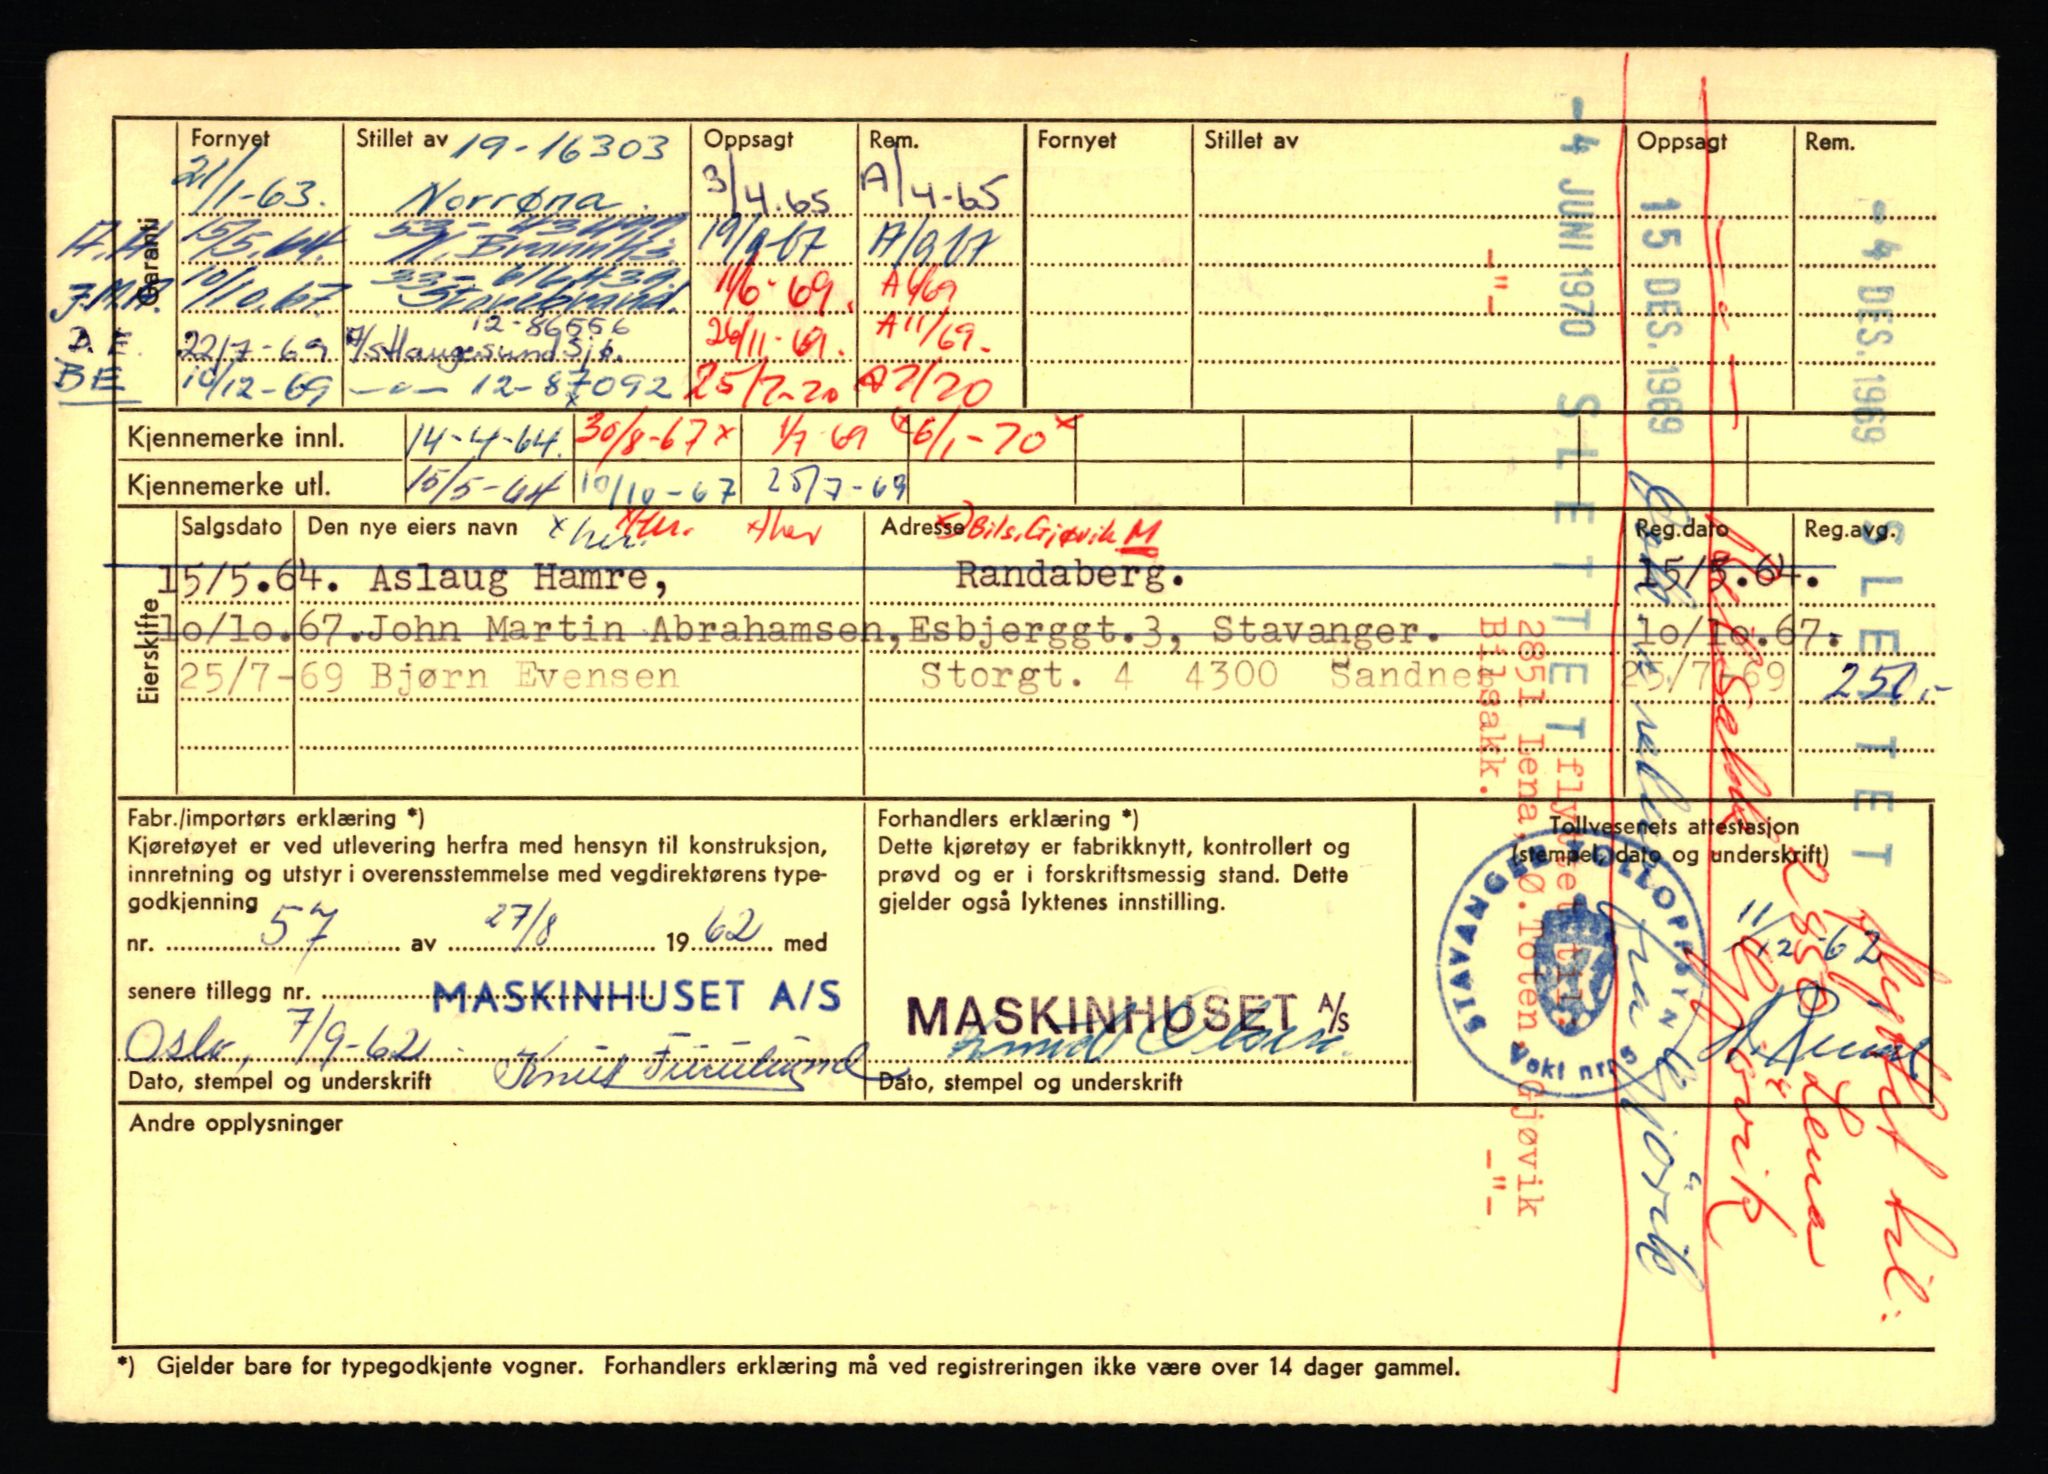 Garanti
Fornyet Stillet av 19-16303 Oppsagt Rem. Fornyet Stillet av Oppsagt Rem.
21/1-63. Norrøna. 3/4.65 A/4-65
A.H. 15/5.64. 19/9.67 A/9.67
J.M.A. 10/10.67. 33-616439. Storebrand. 11/6-69. A6/69
B.E. 22/7-69 12-86556 A/S Haugesund Sjø. 26/11-69. A11/69.
BE 10/12-69 —"— 12-87092 25/2-70 A2/70
Kjennemerke innl. 14-4-64. 30/8-67x 1/7 69 6/1-70x
Kjennemerke utl. 15/5-64 10/10-67 25/7-69
Eierskifte
Salgsdato Den nye eiers navn x her. x her. x her Adresse x) Bils. Gjøvik M Reg.dato Reg.avg.
15/5.64. Aslaug Hamre, Randaberg. 15/5.64.
10/10.67. John Martin Abrahamsen, Esbjerggt.3, Stavanger. 10/10.67.
25/7-69 Bjørn Evensen Storgt. 4 4300 Sandnes 25/7-69 250,-
Fabr./importørs erklæring *)
Kjøretøyet er ved utlevering herfra med hensyn til konstruksjon,
innretning og utstyr i overensstemmelse med vegdirektørens type-
godkjenning
nr. 57 av 27/8 1962 med
senere tillegg nr.
MASKINHUSET A/S
Oslo, 7/9-62. Knut
Dato, stempel og underskrift
Forhandlers erklæring *)
Dette kjøretøy er fabrikknytt, kontrollert og
prøvd og er i forskriftsmessig stand. Dette
gjelder også lyktenes innstilling.
MASKINHUSET A/S
Dato, stempel og underskrift
Tollvesenets attestasjon
(stempel, dato og underskrift)
STAVANGER TOLLOPPSYN
Vekt nr. 5
11/12-62
Andre opplysninger
*) Gjelder bare for typegodkjente vogner. Forhandlers erklæring må ved registreringen ikke være over 14 dager gammel.
-4 JUNI 1970 SLETTET
-"- flyttet til:
2851 Lena, Ø.Toten. Gjøvik
Bilsakk. -"-
15 DES. 1969
fra Gjövik
-4 DES. 1969 SLETTET
flyttet til:
2850 Lena
Gjövik